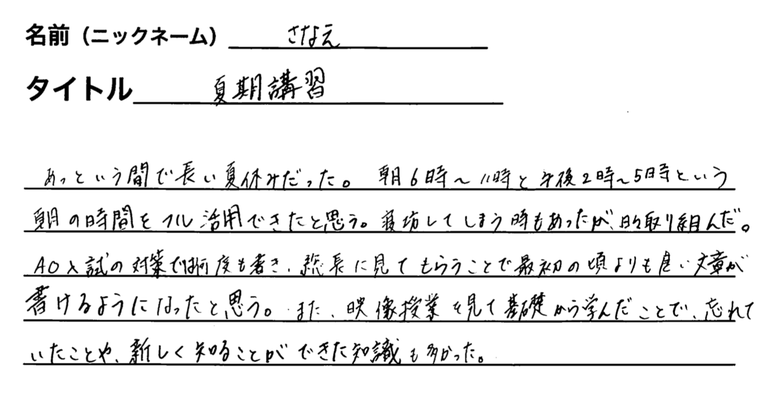 名前（ニックネーム） さなえ
タイトル 夏期講習
あっという間で長い夏休みだった。朝6時～11時と午後2時～5時という
期間の時間をフル活用できたと思う。寝坊してしまう時もあったが、日々取り組んだ。
AO入試の対策では何度も書き、塾長に見てもらうことで最初の頃よりも良い文章が
書けるようになったと思う。また、映像授業を見て基礎から学んだことで、忘れて
いたことや、新しく知ることができた知識も多かった。